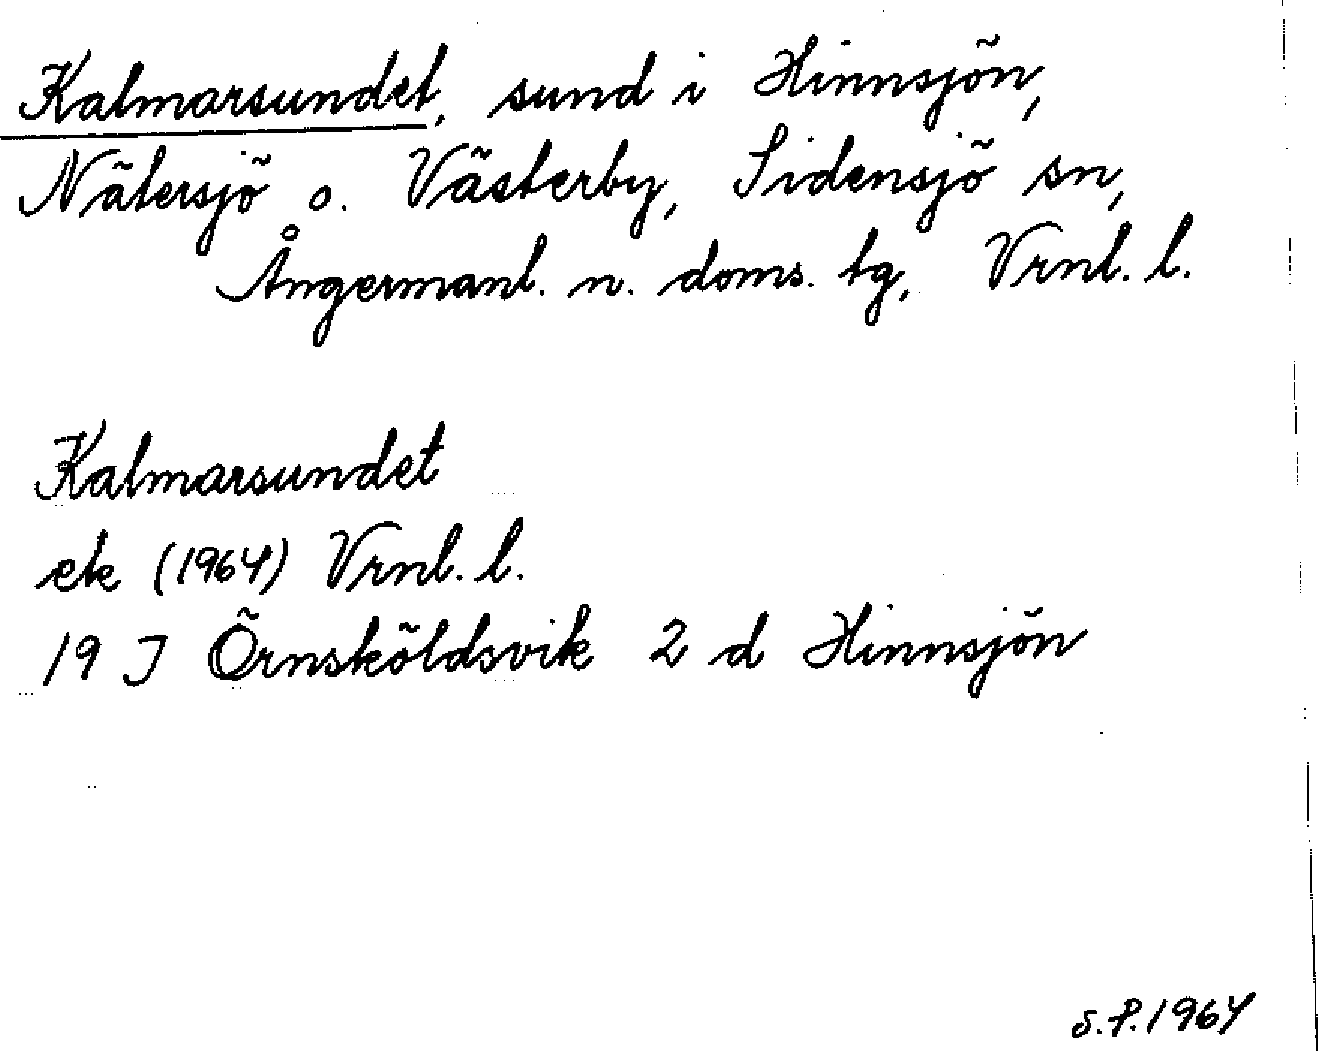 Kalmarsundet, sund i Hinnsjön,
Nätersjö o. Västerby, Sidensjö sn,
Ångermanl. n. doms. tg, Vrnl. l.
Kalmarsundet
ek (1964) Vrnl. l.
19 J Örnsköldsvik 2 d Hinnsjön
S.P. 1964